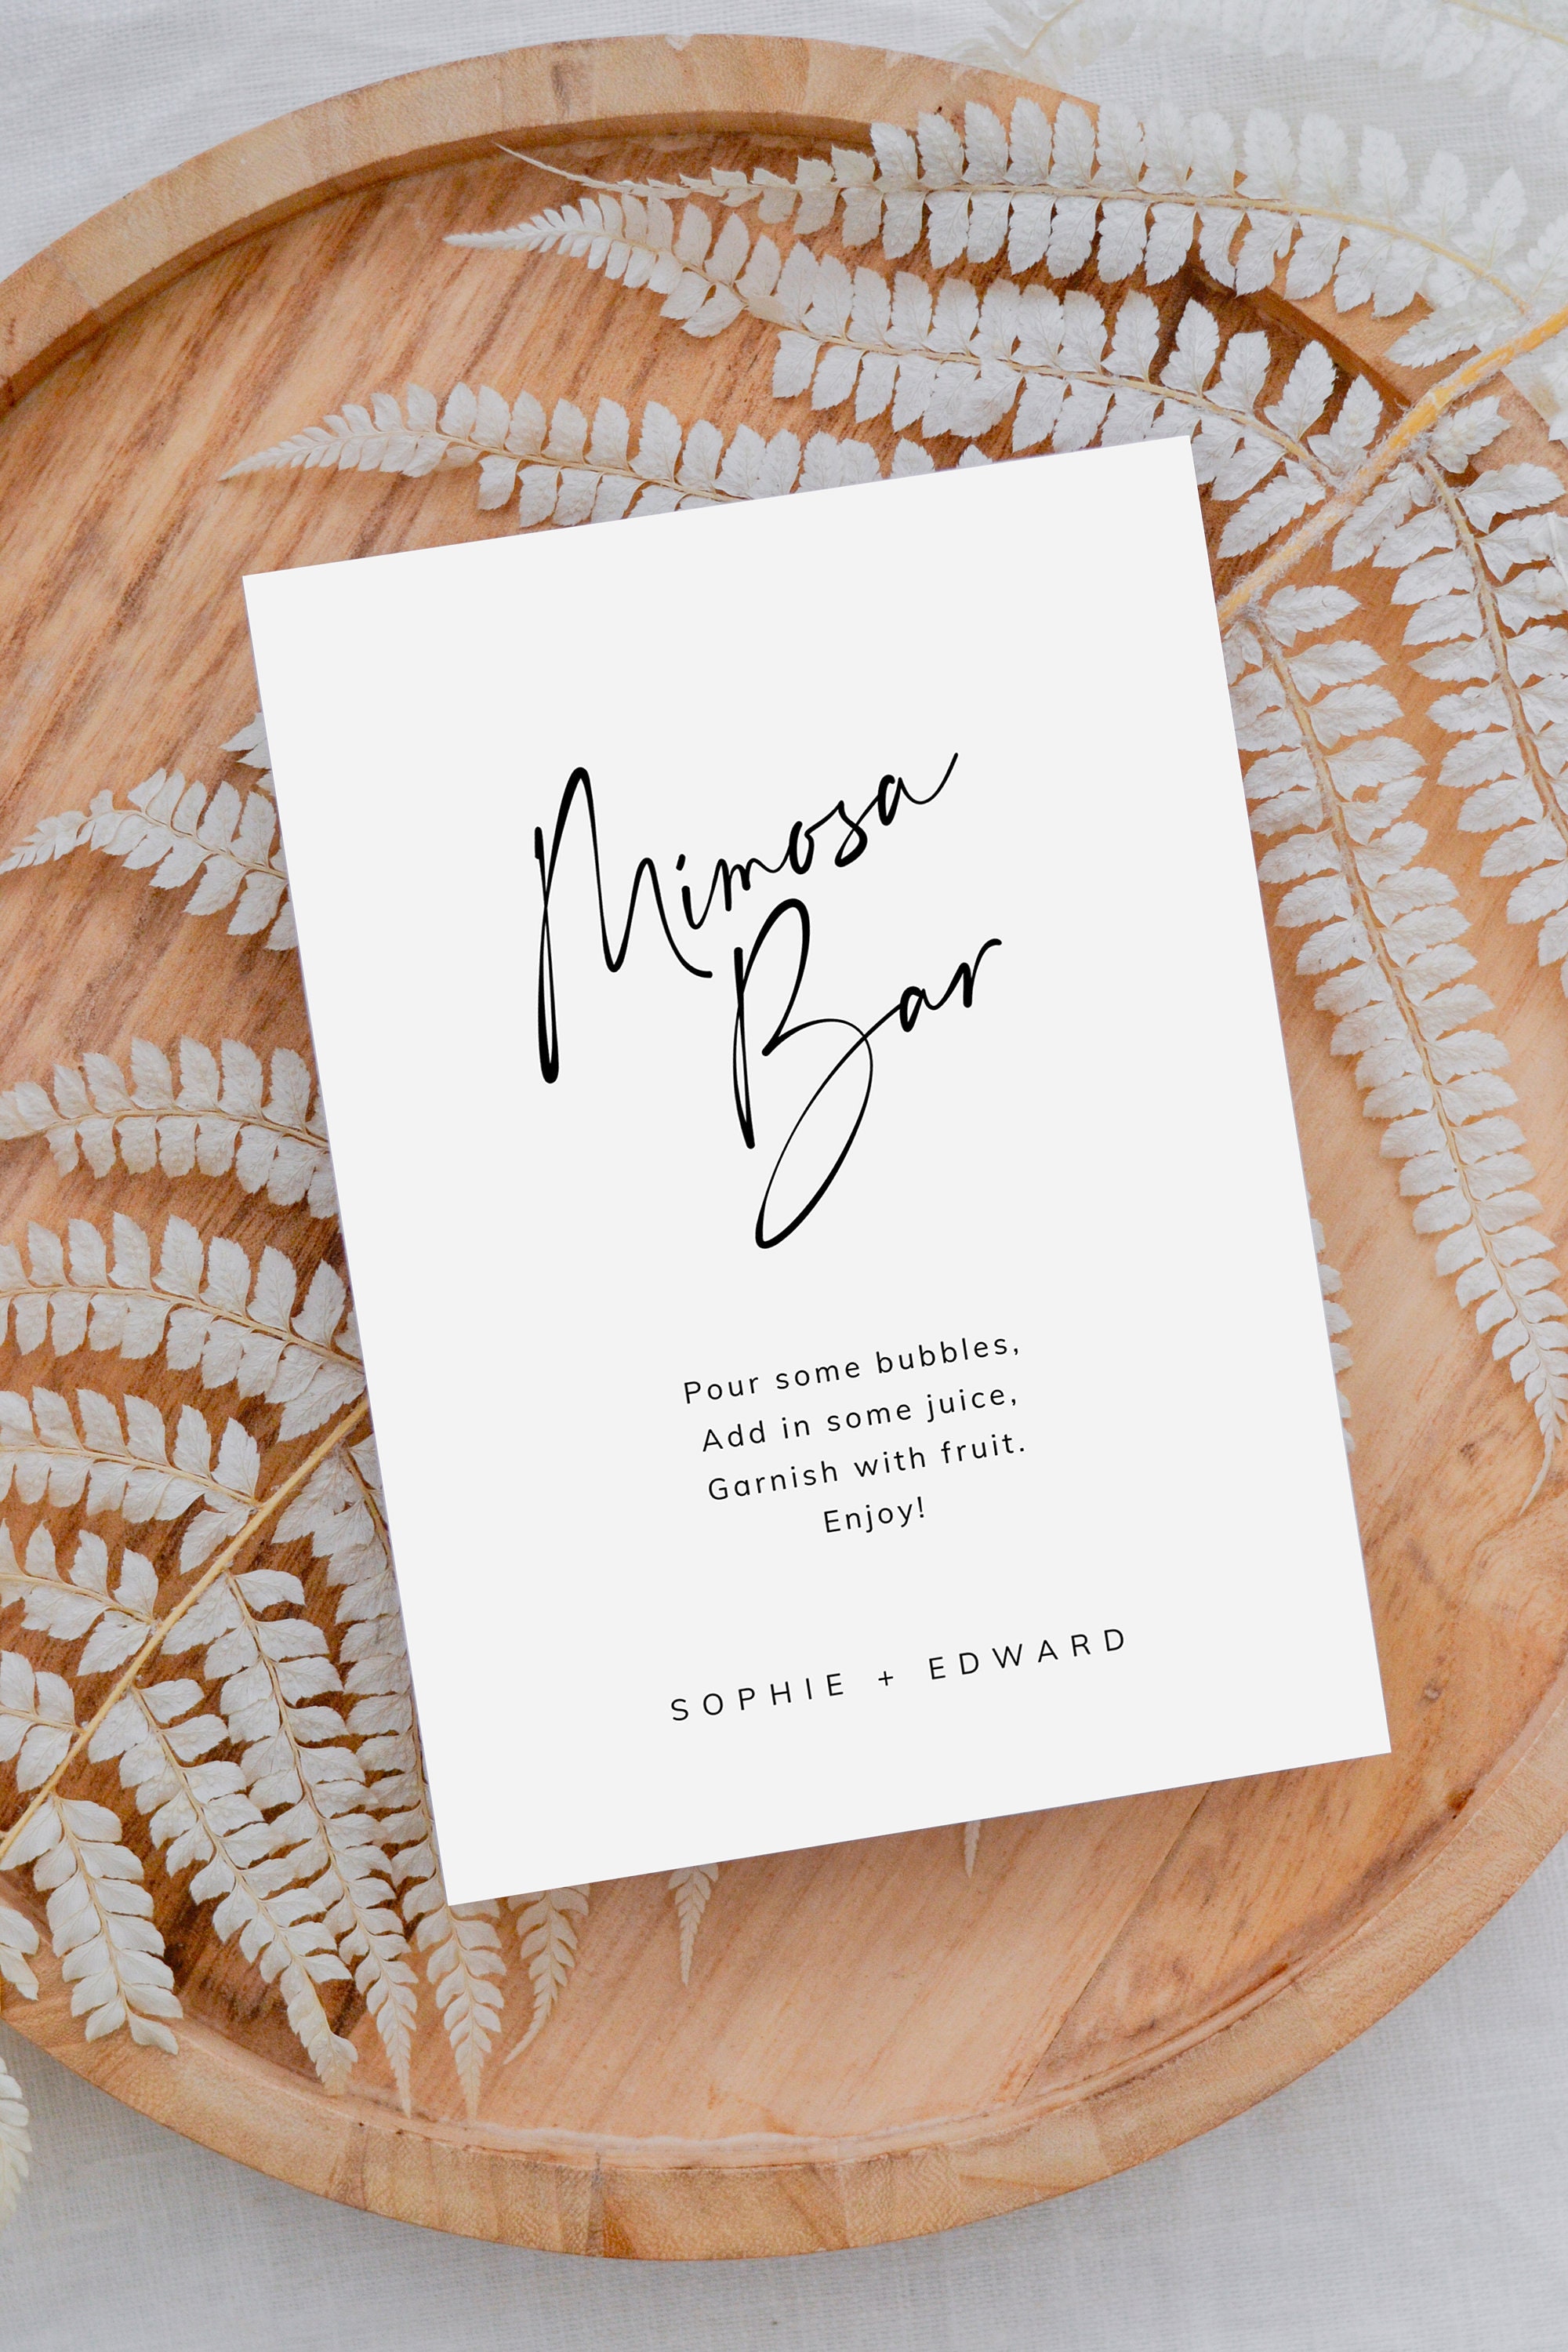 Mimosa
Bar
Pour some bubbles,
Add in some juice,
Garnish with fruit.
Enjoy!
SOPHIE + EDWARD